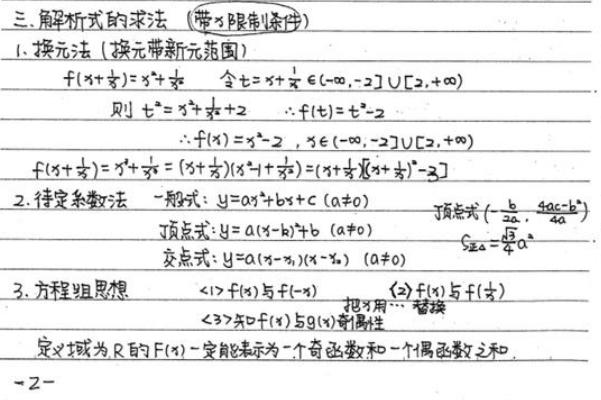 三.解析式的求法 (带x限制条件)
1.换元法(换元带新元范围)
f(x+1/x)=x²+1/x² 令t=x+1/x∈(-∞,-2]∪[2,+∞)
则 t²=x²+1/x²+2 ∴f(t)=t²-2
∴f(x)=x²-2 , x∈(-∞,-2]∪[2,+∞)
f(x+1/x)=x³+1/x³=(x+1/x)(x²-1+1/x²)=(x+1/x)[(x+1/x)²-3]
2.待定系数法 一般式: y=ax²+bx+c (a≠0)
顶点式(-b/2a, 4ac-b²/4a)
顶点式: y=a(x-k)²+b (a≠0)
S正△=√3/4 a²
交点式: y=a(x-x₁)(x-x₂) (a≠0)
3.方程组思想 <1>f(x)与f(-x) <2>f(x)与f(1/x)
把x用…替换
<3>知f(x)与g(x)奇偶性
定义域为R的F(x)一定能表示为一个奇函数和一个偶函数之和.
-2-